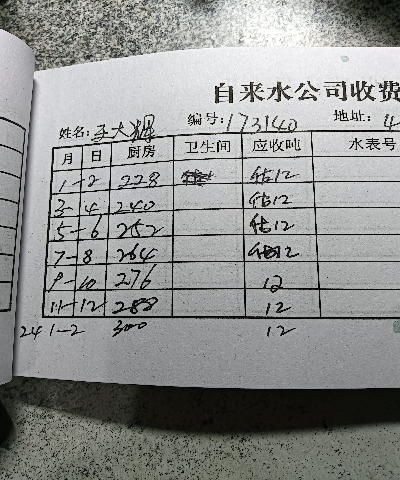 自来水公司收费
姓名: 王大 编号: 173140 地址: 4
月 日 厨房 卫生间 应收吨 水表号
1-2 228 估12
3-4 240 估12
5-6 252 估12
7-8 264 估12
9-10 276 12
11-12 288 12
24 1-2 300 12